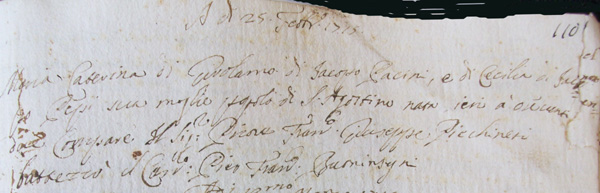 A dì 25 Febb.
110
Maria Caterina di Girolamo di Jacopo Pacini, e di Cecilia di
Pepi sua moglie popolo di S. Agostino nata ieri a ore venti
dua Compare il Sig. Franc. Giuseppe Picchineri
battezzò il Can. Pier Franc. Buoninsegni